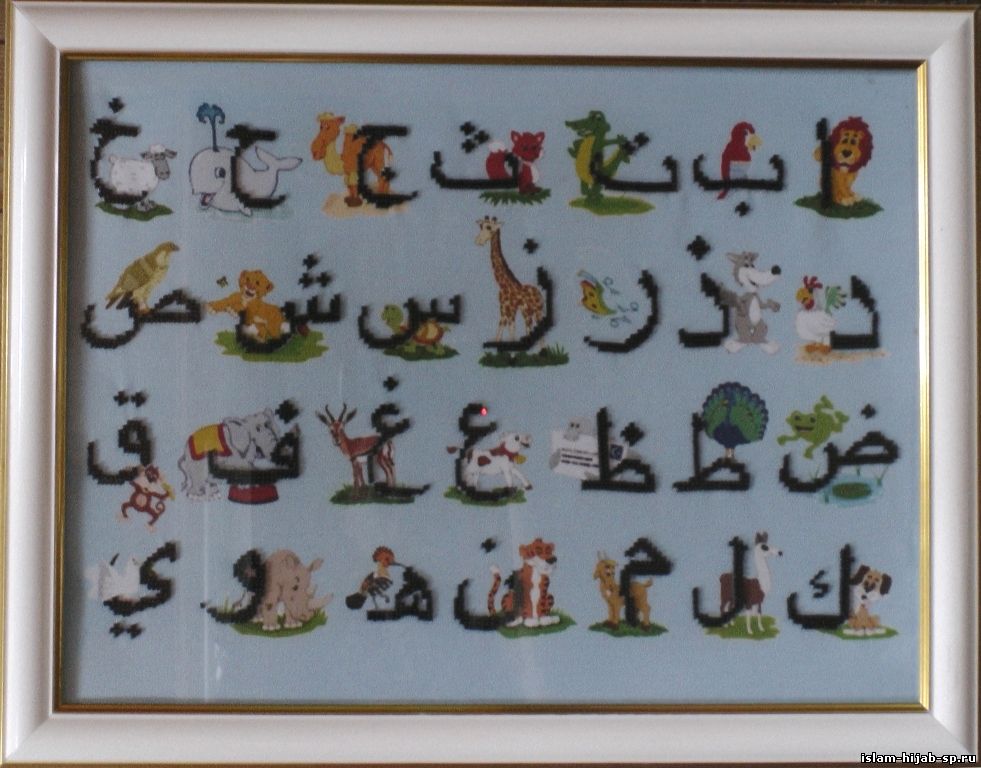 ا ب ت ث ج ح خ
د ذ ر ز س ش ص
ض ط ظ ع غ ف ق
ك ل م ن هـ و ي
islam-hijab-sp.ru